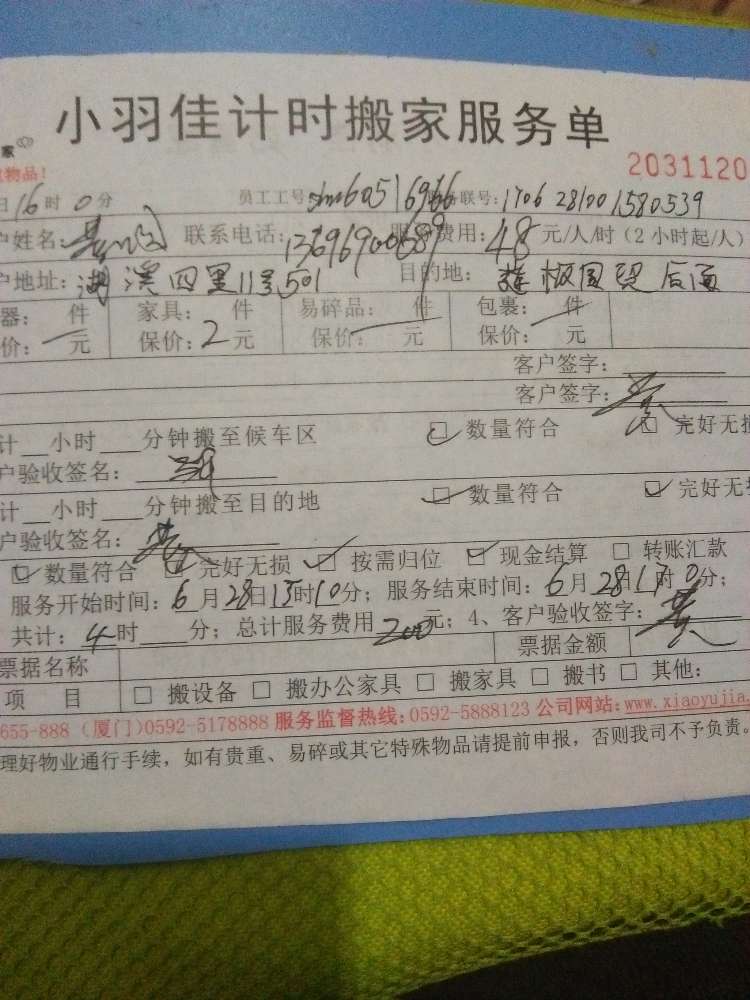 小羽佳计时搬家服务单
家
物品!
2031120
日16时0分 员工工号: 联号:1706281001580539
户姓名: 联系电话: 服务费用:48元/人/时(2小时起/人)
户地址:湖滨四里11号501 目的地: 国贸后面
器: 件 家具: 件 易碎品: 件 包裹: 件
价: 元 保价:2元 保价: 元 保价: 元
客户签字:
客户签字:
计__小时___分钟搬至候车区 数量符合 完好无损
户验收签名:
计__小时___分钟搬至目的地 数量符合 完好无
户验收签名:
数量符合 完好无损 按需归位 现金结算 转账汇款
服务开始时间:6月28日15时10分;服务结束时间:6月28日17时0分;
共计:4时___分;总计服务费用200元;4、客户验收签字:
票据名称 票据金额
项目 搬设备 搬办公家具 搬家具 搬书 其他:
655-888 (厦门)0592-5178888 服务监督热线:0592-5888123 公司网站:www.xiaoyujia.
理好物业通行手续,如有贵重、易碎或其它特殊物品请提前申报,否则我司不予负责。